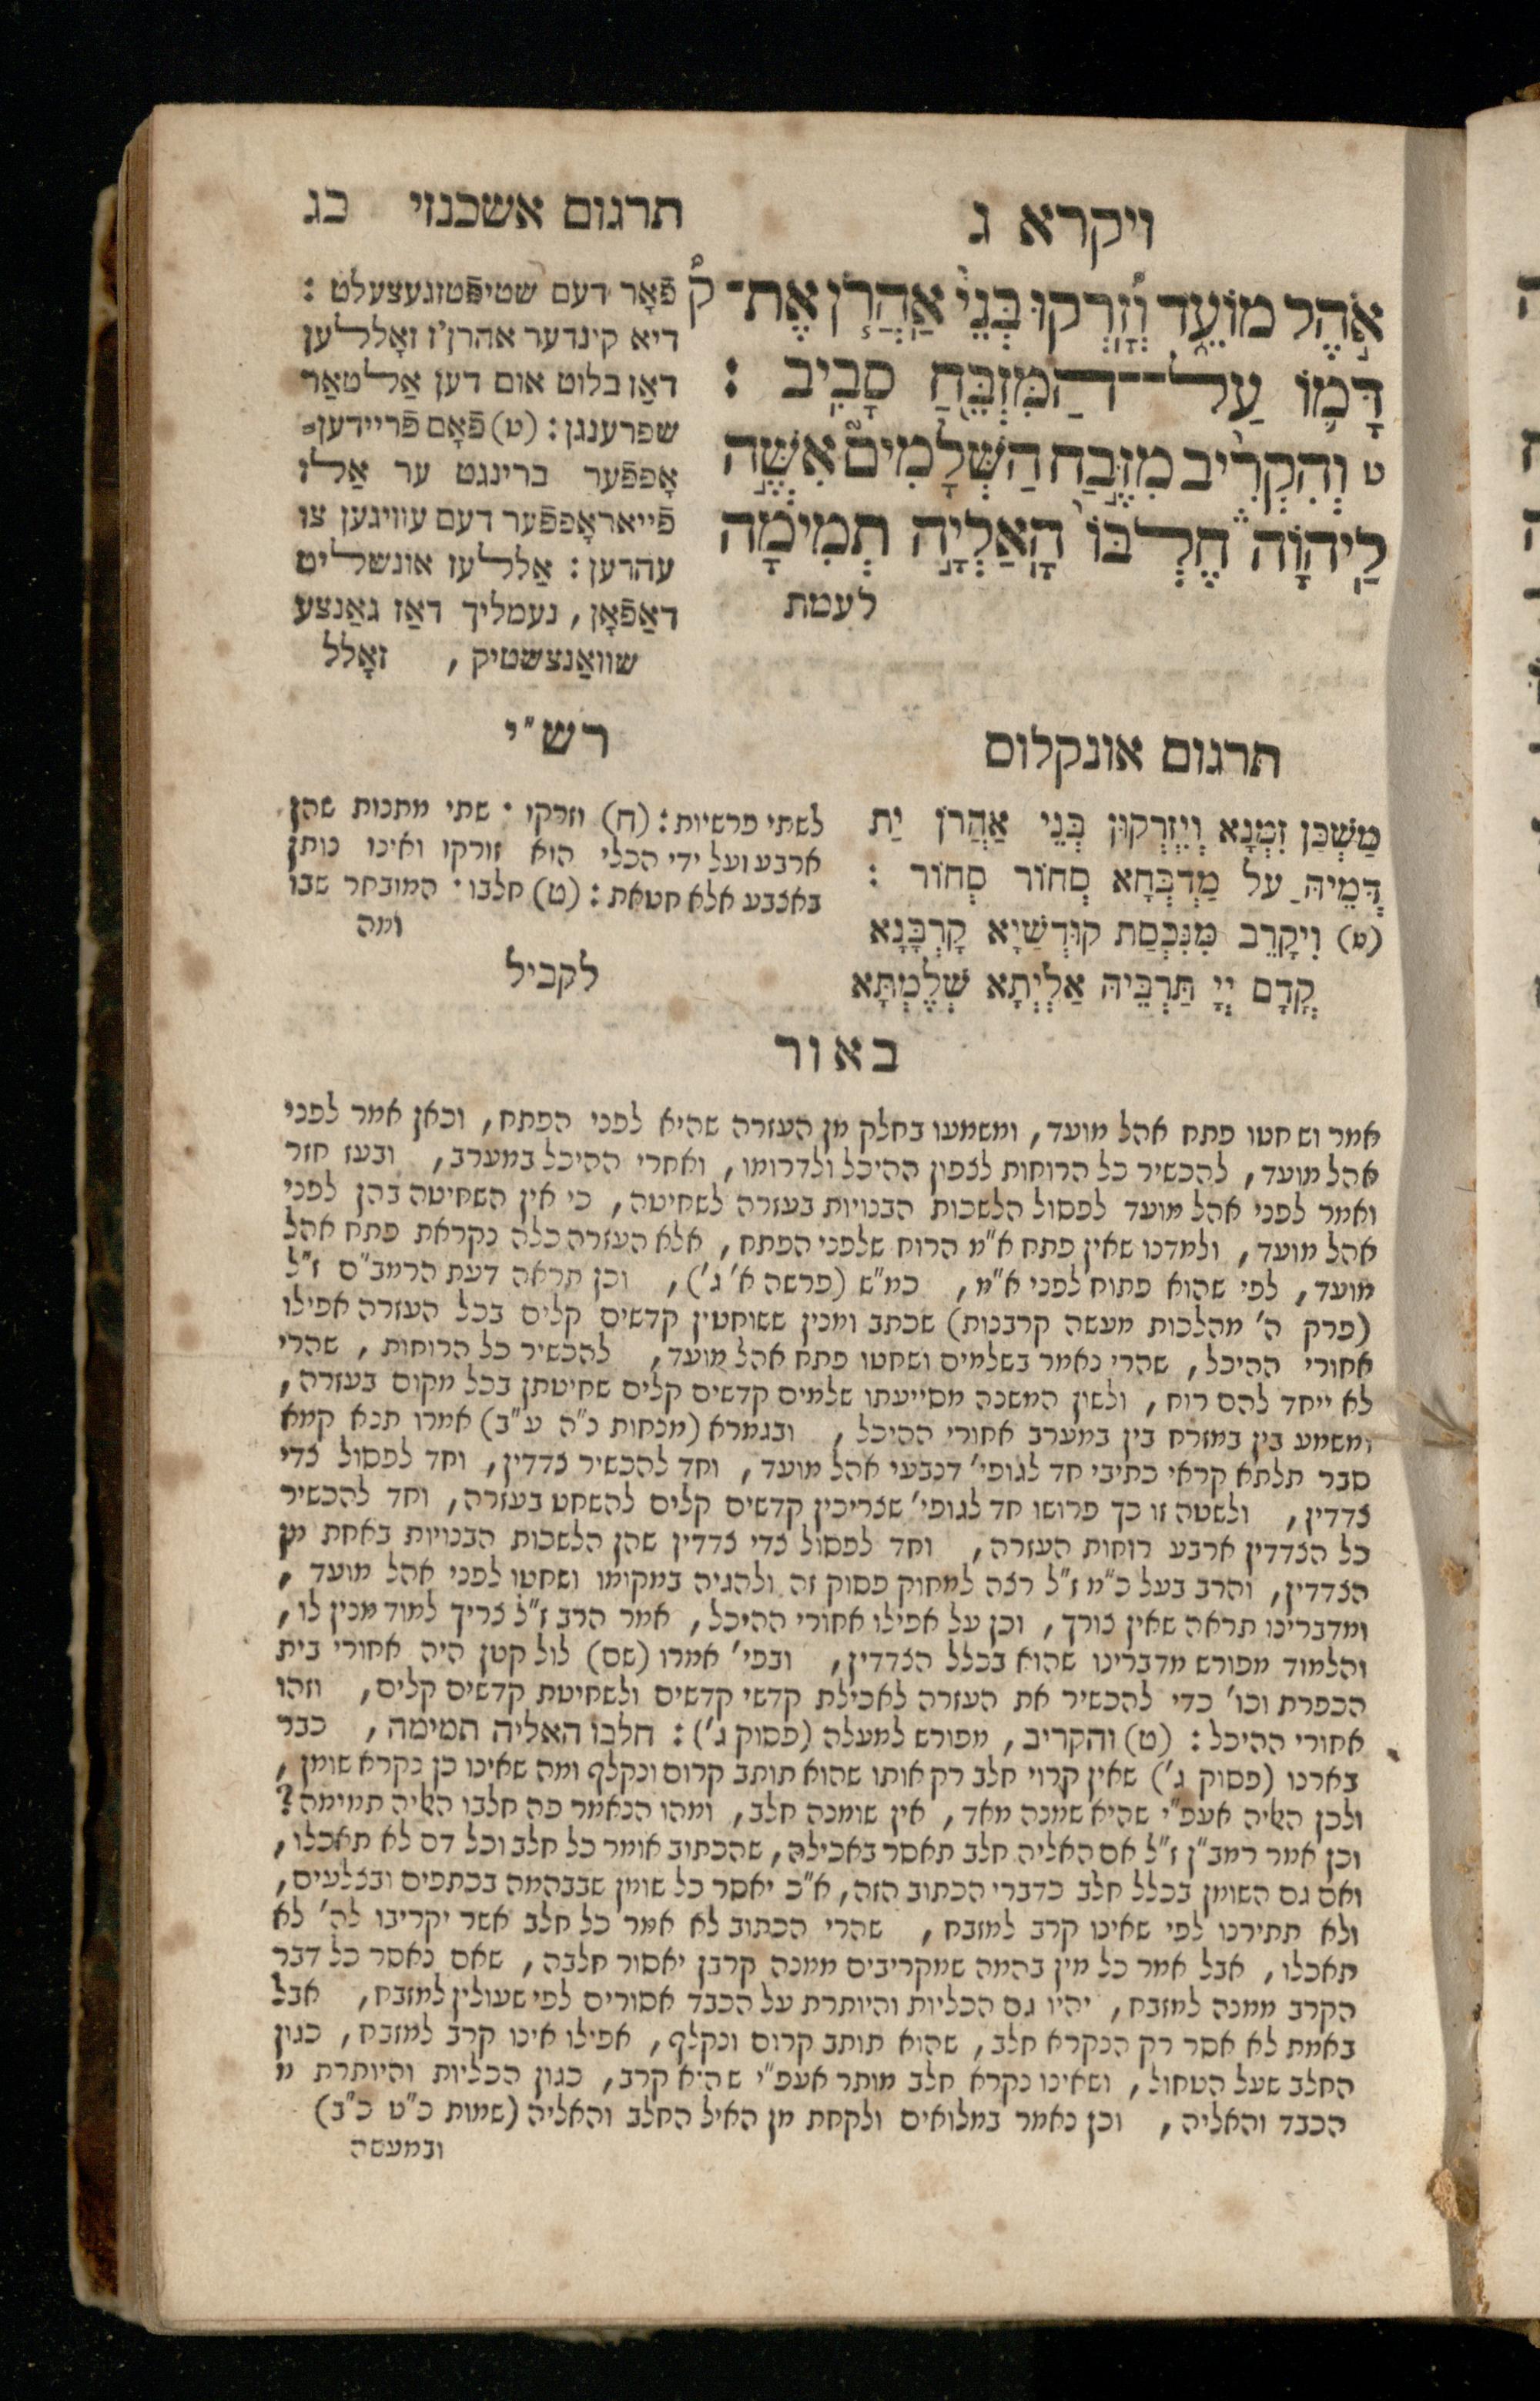 ויקרא ג
תרגום אשכנזי כג
אֹ֣הֶל מוֹעֵ֑ד וְ֠זָרְק֠וּ בְּנֵ֨י אַהֲרֹ֧ן אֶת־
דָּמ֛וֹ עַל־הַמִּזְבֵּ֖חַ סָבִֽיב :
ט וְהִקְרִ֨יב מִזֶּ֣בַח הַשְּׁלָמִים֮ אִשֶּׁ֣ה
לַֽיהוָה֒ חֶלְבּוֹ֙ הָֽאַלְיָ֣ה תְמִימָ֔ה
לעטת
פֿאָר דעם שטיפֿטזגעצעלט :
דיא קינדער אהרן'ז זאָללען
דאַז בלוט אום דען אַלטאַר
שפרענגן : (ט) פֿאָם פֿריידען=
אָפפֿער ברינגט ער אַלז
פֿייאראָפפֿער דעם עוויגען צו
עהרען : אַללעז אונשליט
דאַפֿאָן, נעמליך דאַז גאַנצע
שוואַנצשטיק, זאָלל
תרגום אונקלוס
מַשְׁכַּן זִמְנָא וְיִזְרְקוּן בְּנֵי אַהֲרֹן יַת
דְּמֵיהּ עַל מַדְבְּחָא סְחוֹר סְחוֹר :
(ט) וִיקָרֵב מִנִּכְסַת קוּדְשַׁיָא קָרְבָּנָא
קֳדָם יְיָ תַּרְבֵּיהּ אַלְיְתָא שְׁלֶמְתָּא
לקביל
רש"י
לשתי פרשיות : (ח) וזרקו · שתי מתנות שהן
ארבע ועל ידי הכלי הוא זורקו ואינו נותן
באצבע אלא חטאת : (ט) חלבו · המובחר שבו
ומה
באור
אמר ושחטו פתח אהל מועד, ומשמעו בחלק מן העזרה שהיא לפני הפתח, וכאן אמר לפני
אהל מועד, להכשיר כל הרוחות לצפון ההיכל ולדרומו, ואחרי ההיכל במערב, ובעז חזר
ואמר לפני אהל מועד לפסול הלשכות הבנויות בעזרה לשחיטה, כי אין השחיטה בהן לפני
אהל מועד, ולמדנו שאין פתח א"מ הרוח שלפני הפתח, אלא העזרה כלה נקראת פתח אהל
מועד, לפי שהוא פתוח לפני א"מ, כמ"ש (פרשה א' ג'), וכן תראה דעת הרמב"ם ז"ל
(פרק ה' מהלכות מעשה קרבנות) שכתב ומנין ששוחטין קדשים קלים בכל העזרה אפילו
אחורי ההיכל, שהרי נאמר בשלמים ושחטו פתח אהל מועד, להכשיר כל הרוחות, שהרי
לא ייחד להם רוח, ולשון המשנה מסייעתו שלמים קדשים קלים שחיטתן בכל מקום בעזרה,
ומשמע בין במזרח בין במערב אחורי ההיכל, ובגמרא (מנחות כ"ה ע"ב) אמרו תנא קמא
סבר תלתא קראי כתיבי חד לגופי' דנבעי אהל מועד, וחד להכשיר צדדין, וחד לפסול צדי
צדדין, ולשטה זו כך פרושו חד לגופי' שצריכין קדשים קלים להשחט בעזרה, וחד להכשיר
כל הצדדין ארבע רוחות העזרה, וחד לפסול צדי צדדין שהן הלשכות הבנויות באחת מן
הצדדין, והרב בעל כ"מ ז"ל רצה למחוק פסוק זה ולהגיה במקומו ושחטו לפני אהל מועד,
ומדברינו תראה שאין צורך, וכן על אפילו אחורי ההיכל, אמר הרב ז"ל צריך למוד מנין לו,
והלמוד מפורש מדברינו שהוא בכלל הצדדין, ובפי' אמרו (שם) לול קטן היה אחורי בית
הכפרת וכו' כדי להכשיר את העזרה לאכילת קדשי קדשים ולשחיטת קדשים קלים, וזהו
אחורי ההיכל : (ט) והקריב, מפורש למעלה (פסוק ג') : חלבו האליה תמימה, כבר
בארנו (פסוק ג') שאין קרוי חלב רק אותו שהוא תותב קרום ונקלף ומה שאינו כן נקרא שומן,
ולכן האליה אעפ"י שהיא שמנה מאד, אין שומנה חלב, ומהו הנאמר פה חלבו האליה תמימה?
וכן אמר רמב"ן ז"ל אם האליה חלב תאסר באכילה, שהכתוב אומר כל חלב וכל דם לא תאכלו,
ואם גם השומן בכלל חלב כדברי הכתוב הזה, א"כ יאסר כל שומן שבבהמה בכתפים ובצלעים,
ולא תתירנו לפי שאינו קרב למזבח, שהרי הכתוב לא אמר כל חלב אשר יקריבו לה' לא
תאכלו, אבל אמר כל מין בהמה שמקריבים ממנה קרבן יאסור חלבה, שאם נאסר כל דבר
הקרב ממנה למזבח, יהיו גם הכליות והיותרת על הכבד אסורים לפי שעולין למזבח, אבל
באמת לא אסר רק הנקרא חלב, שהוא תותב קרום ונקלף, אפילו אינו קרב למזבח, כגון
החלב שעל הטחול, ושאינו נקרא חלב מותר אעפ"י שהיא קרב, כגון הכליות והיותרת מ
הכבד והאליה, וכן נאמר במלואים ולקחת מן האיל החלב והאליה (שמות כ"ט כ"ב)
ובמעשה